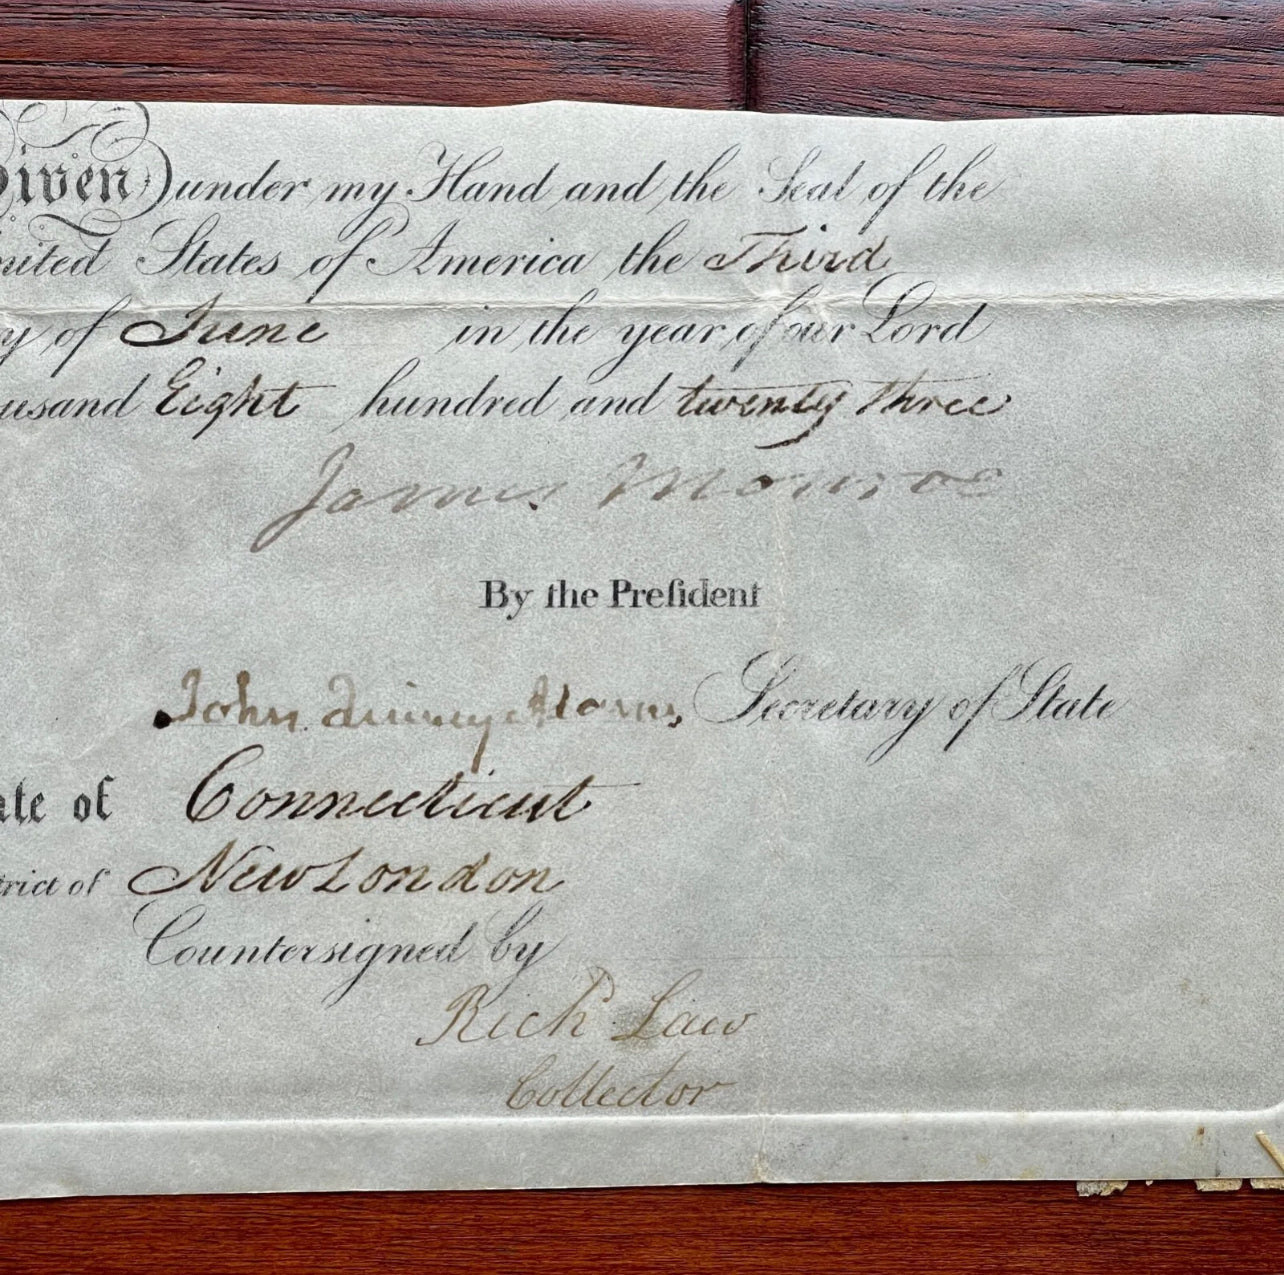 Given under my Hand and the Seal of the
United States of America the Third
y of June in the year of our Lord
usand Eight hundred and twenty three
James Monroe
By the Preſident
John Quincy Adams, Secretary of State
ate of Connecticut
trict of New London
Countersigned by
Richd Law
Collector